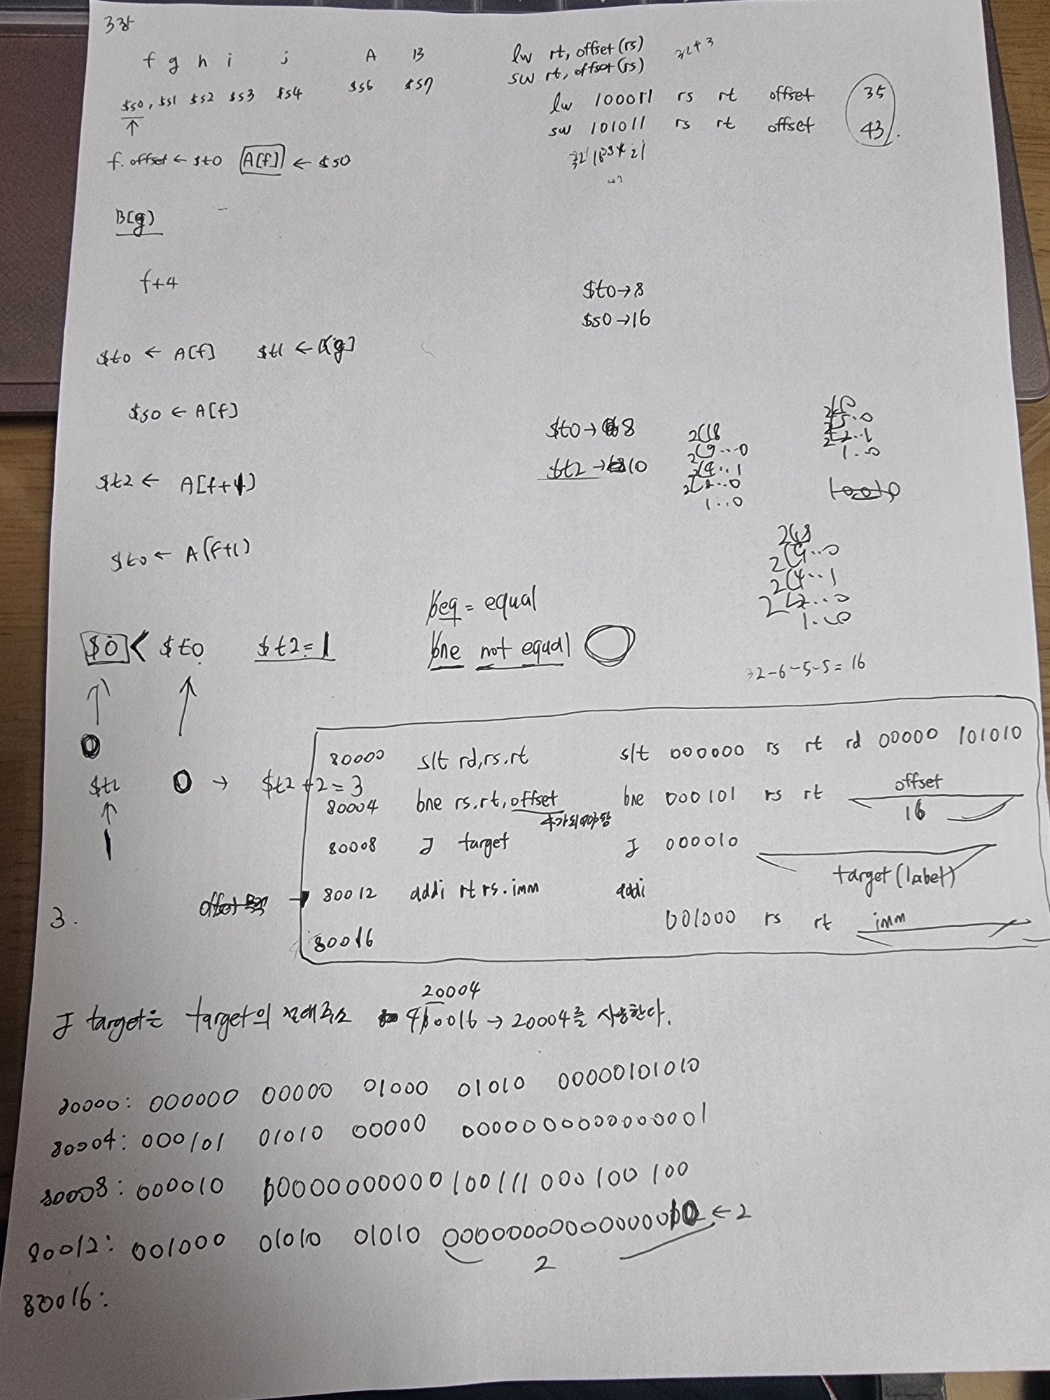 3장
f g h i j A B
$s0, $s1 $s2 $s3 $s4 $s6 $s7
↑
f. offset ← $t0 A[f] ← $s0
B[g)
f+4
$t0 ← A[f] $t1 ← [g]
$s0 ← A[f]
$t2 ← A[f+4)
$t0 ← A[f+1)
lw rt, offset(rs)
sw rt, offset(rs)
lw 100011 rs rt offset 35
sw 101011 rs rt offset 43
$t0→8
$s0→16
$t0→ 8
$t2→ 10
beq = equal
bne not equal
32-6-5-5=16
$0 < $t0 $t2=1
0
$t2 0 → $t2+2=3
↑
1
80000 slt rd,rs.rt slt 000000 rs rt rd 00000 101010
80004 bne rs.rt, offset bne 000101 rs rt offset
16
80008 J target J 000010
target(label)
80012 addi rt rs.imm addi
001000 rs rt imm
80016
3.
20004
J target는 target의 절대주소 0016 → 20004를 사용한다.
80000: 000000 00000 01000 01010 00000101010
80004: 000101 01010 00000 0000000000000001
80008: 000010 00000000000100111000100100
80012: 001000 01010 01010 0000000000000010 ← 2
2
80016: